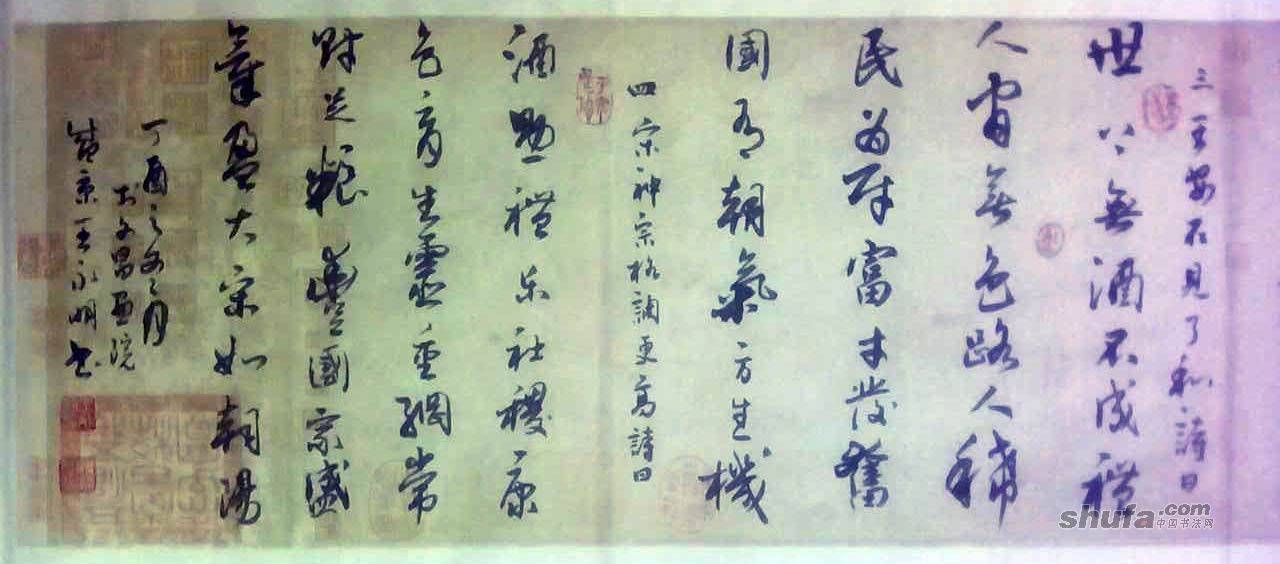 三 王安石見了和詩曰
世上無酒不成禮
人間無色路人稀
民為財富才發奮
國有朝氣方生機
四 宋神宗格調更高詩曰
酒助禮乐社稷康
色育生靈重綱常
財足糧豐國家盛
氣盈大宋如朝陽
丁酉之冬月
於文昌画院
京王永明书
shufa.com
中国书法网